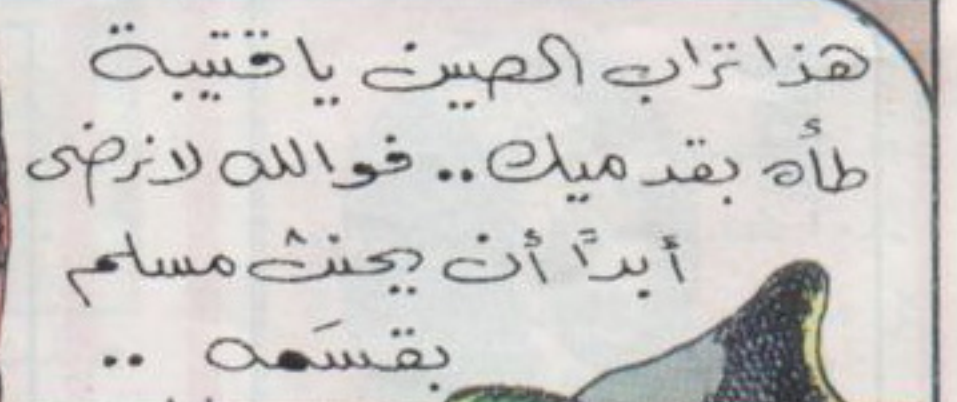 هذا تراب الصين يا قتيبة
طأه بقدميك .. فوالله لا نرضى
أبدًا أن يحنث مسلم
بقسَمه ..